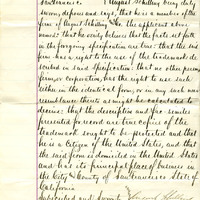 San Francisco. } August Schilling being duly
sworn, deposes and says, that he is a member of the
firm of August Schilling & Co. the applicant above
named: that he verily believes that the facts set forth
in the foregoing specification are true: that the said
firm has a right to the use of the trademark de-
scribed in said specification: that no other person,
firm, or corporation, has the right to use such
either in the identical form, or in any such near
resemblance thereto as might be calculated to
deceive: that the description and fac-similes
presented for record are true copies of the
trademark sought to be protected: and that
he is a citizen of the United States, and that
the said firm is domiciled in the United States
and has its principal place of business in
the City and County of San Francisco State of
California
Subscribed and sworn to